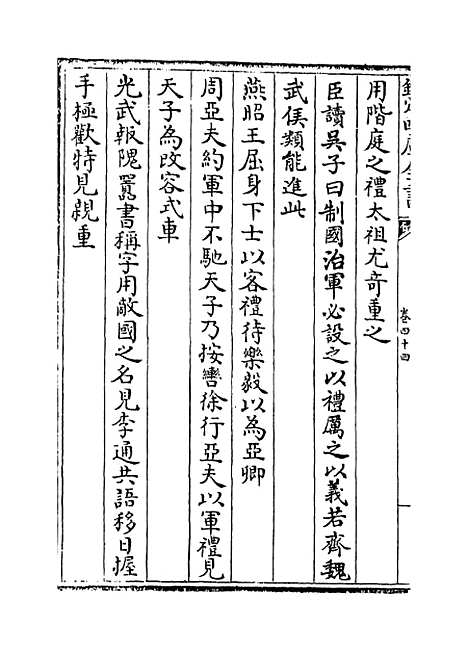 欽定四庫全書
卷四十四
用階庭之禮太祖尤奇重之
臣讀吳子曰制國治軍必設之以禮厲之以義若齊魏
武侯類能進此
燕昭王屈身下士以客禮待樂毅以為亞卿
周亞夫約軍中不馳天子乃按轡徐行亞夫以軍禮見
天子為改容式車
光武報隗囂書稱字用敵國之名見李通共語移日握
手極歡特見親重